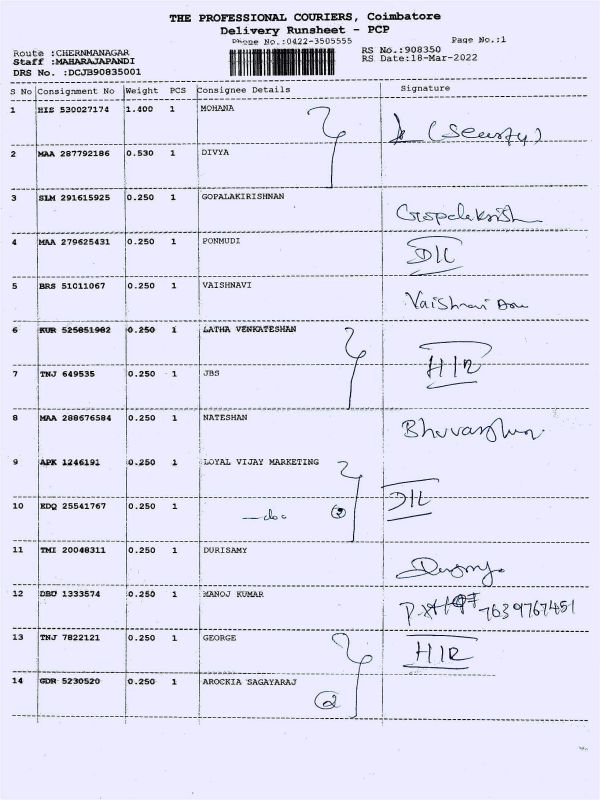 THE PROFESSIONAL COURIERS, Coimbatore
Delivery Runsheet - PCP
Phone No.:0422-3505555
Page No.:1
Route :CHERNMANAGAR
RS No.:908350
Staff :MAHARAJAPANDI
RS Date:18-Mar-2022
DRS No. :DCJB90835001
S No Consignment No Weight PCS Consignee Details Signature
1 HIS 530027174 1.400 1 MOHANA
(Security)
2 MAA 287792186 0.530 1 DIVYA
3 SLM 291615925 0.250 1 GOPALAKIRISHNAN
Gopalakrish
4 MAA 279625431 0.250 1 PONMUDI D/L
5 BRS 51011067 0.250 1 VAISHNAVI
Vaishnavi
6 KUR 525851982 0.250 1 LATHA VENKATESHAN
H/R
7 TNJ 649535 0.250 1 JBS
8 MAA 288676584 0.250 1 NATESHAN
9 APK 1246191 0.250 1 LOYAL VIJAY MARKETING
D/L
10 EDQ 25541767 0.250 1 —do— 2
11 TMI 20048311 0.250 1 DURISAMY
12 DBU 1333574 0.250 1 MANOJ KUMAR
7639767451
13 TNJ 7822121 0.250 1 GEORGE H/R
14 GDR 5230520 0.250 1 AROCKIA SAGAYARAJ
2